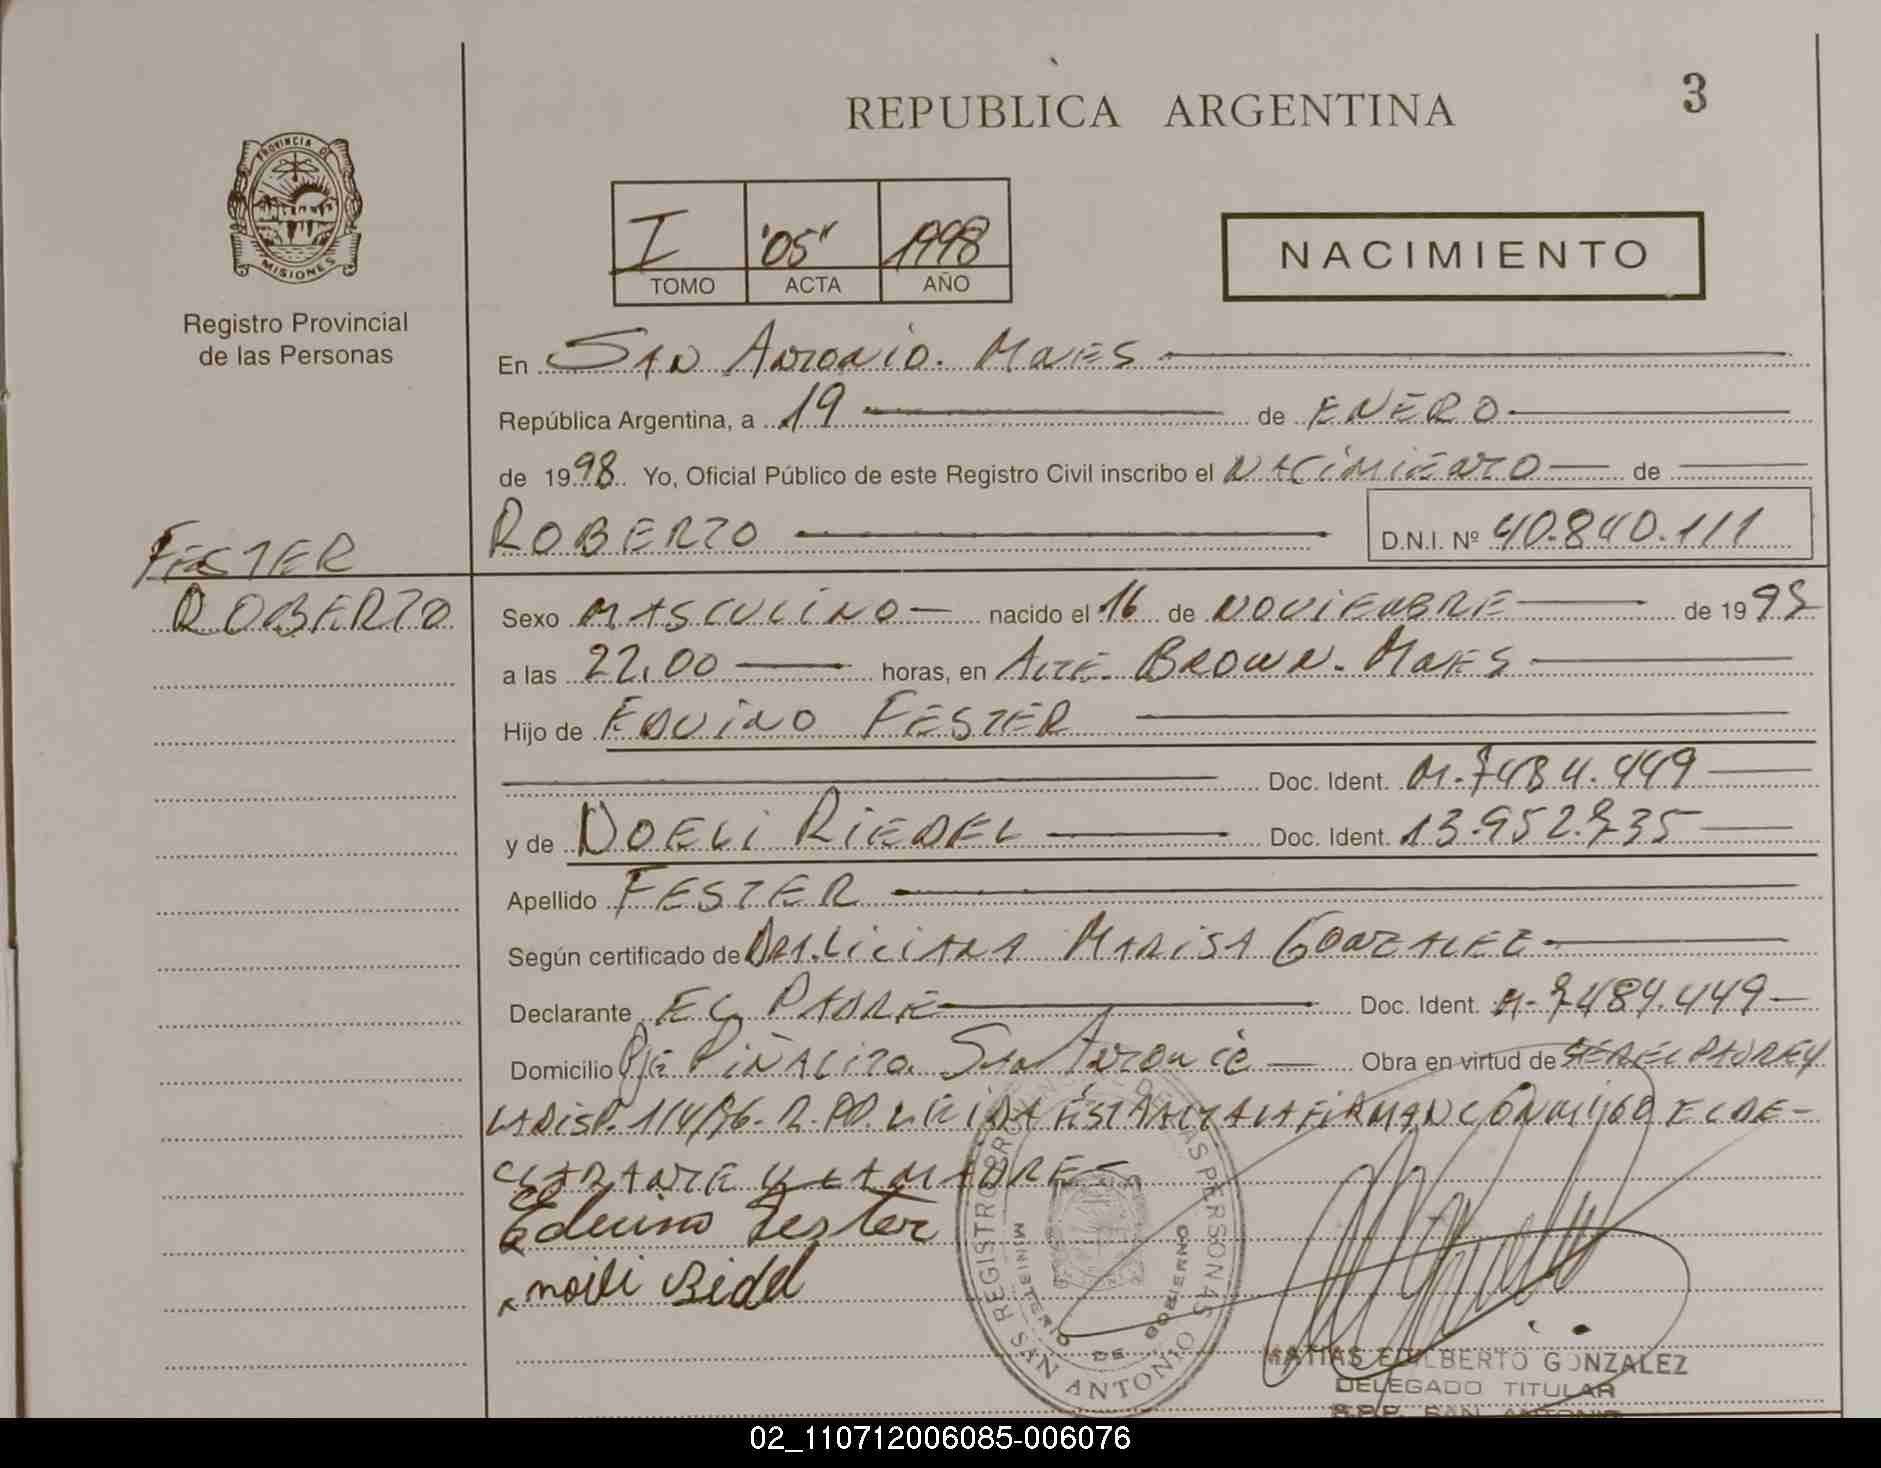 REPUBLICA ARGENTINA
3
PROVINCIA DE
MISIONES
Registro Provincial
de las Personas
I '05" 1998
TOMO ACTA AÑO
NACIMIENTO
En SAN ANTONIO. MNES
República Argentina, a 19 de ENERO
de 1998 Yo, Oficial Público de este Registro Civil inscribo el NACIMIENTO de
ROBERTO D.N.I. Nº 40.840.111
FESTER
ROBERTO
Sexo MASCULINO nacido el 16 de NOVIEMBRE de 19
a las 22,00 horas, en ALTE. BROWN. MNES
Hijo de EDUINO FESTER
Doc. Ident. M-7484.449
y de NOELI RIEDEL Doc. Ident. 13.952.935
Apellido FESTER
Según certificado de DRA. LICIANA MARISA GONZALEZ
Declarante EL PADRE Doc. Ident. M-7484.449
Domicilio PJE PIÑALITO. SAN ANTONIO Obra en virtud de SER EL PADRE Y
LA DISP. 114/96-R.PP. LEIDA ESTA ACTA LA FIRMAN CONMIGO EL DE-
CLARANTE Y LA MADRE-
Eduino Fester
noili
REGISTRO PROVINCIAL DE LAS PERSONAS
MINISTERIO DE GOBIERNO
SAN ANTONIO
MATIAS EDILBERTO GONZALEZ
DELEGADO TITULAR
R.P.P. SAN ANTONIO
02_110712006085-006076